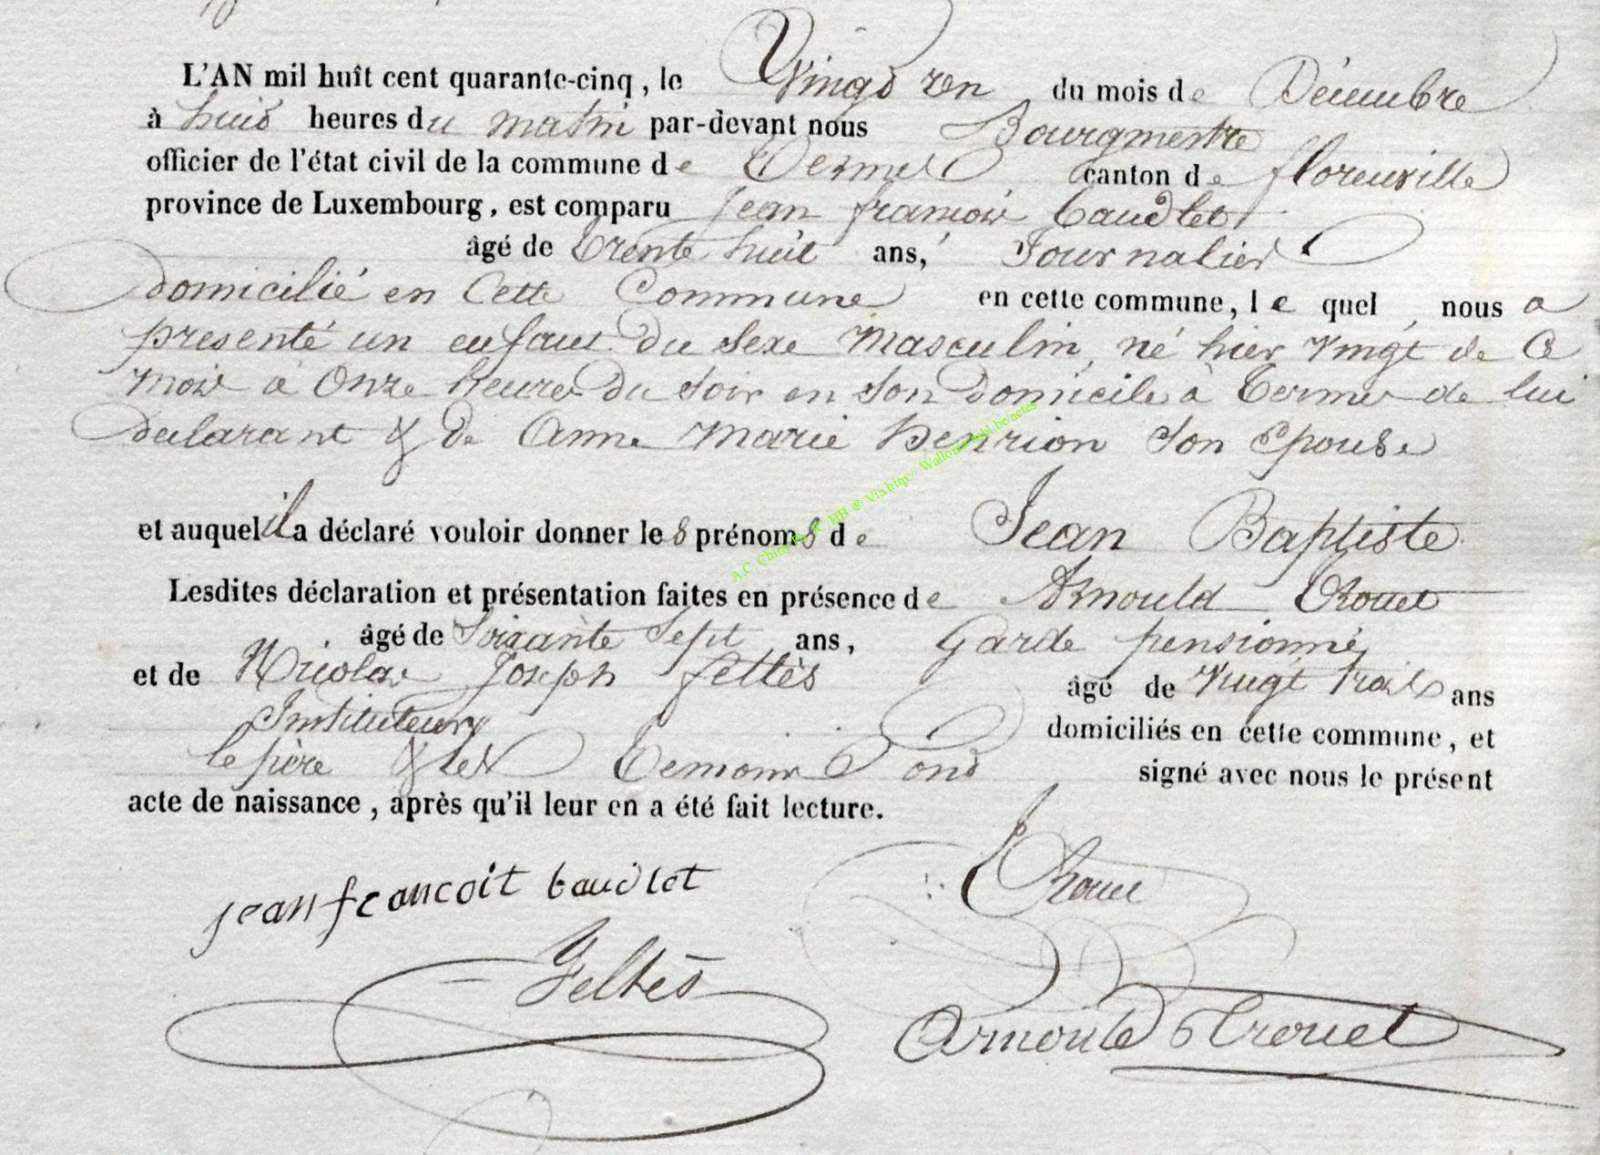 L'AN mil huit cent quarante-cinq, le Vingt un du mois de Décembre
à huit heures du matin par-devant nous Bourgmestre
officier de l'état civil de la commune de Termes canton de florenville
province de Luxembourg, est comparu Jean françois baudlet
âgé de trente huit ans, Journalier
domicilié en Cette Commune en cette commune, le quel nous a
presenté un enfant du sexe Masculin, né hier vingt de Ce
Mois à Onze heures du soir en son Domicile à Termes de lui
declarant & de Anne Marie Henrion son Epouse
et auquel il a déclaré vouloir donner les prénoms de Jean Baptiste
Lesdites déclaration et présentation faites en présence de Arnould
âgé de Soixante Sept ans, Garde pensionné
et de Nicolas Joseph feltés âgé de Vingt trois ans
Instituteur domiciliés en cette commune, et
le père & les temoins ont signé avec nous le présent
acte de naissance, après qu'il leur en a été fait lecture.
jean francoit baudlet
Feltés
Arnould
A.C. Chiny